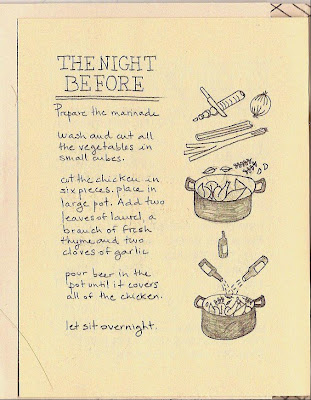 THE NIGHT
BEFORE
Prepare the marinade
wash and cut all
the vegetables in
small cubes.
cut the chicken in
six pieces. place in
large pot. Add two
leaves of laurel, a
branch of fresh
thyme and two
cloves of garlic
pour beer in the
pot until it covers
all of the chicken.
let sit overnight.